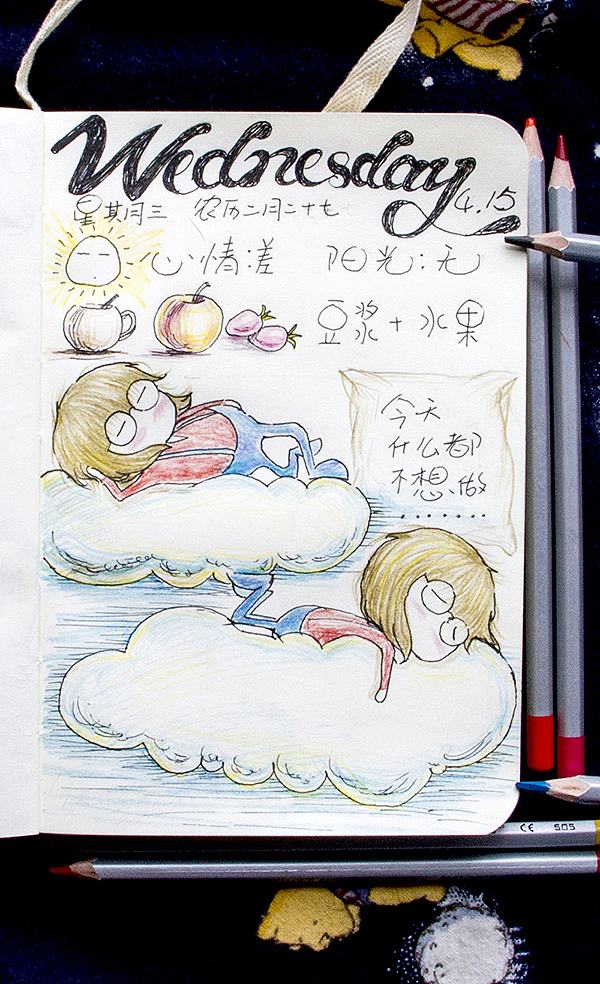 Wednesday
4.15
星期三 农历二月二十七
心情:差 阳光:无
豆浆+水果
今天
什么都
不想做
.......
CE 505